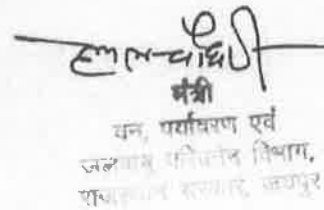 मंत्री
वन, पर्यावरण एवं
जलवायु परिवर्तन विभाग,
राजस्थान सरकार, जयपुर